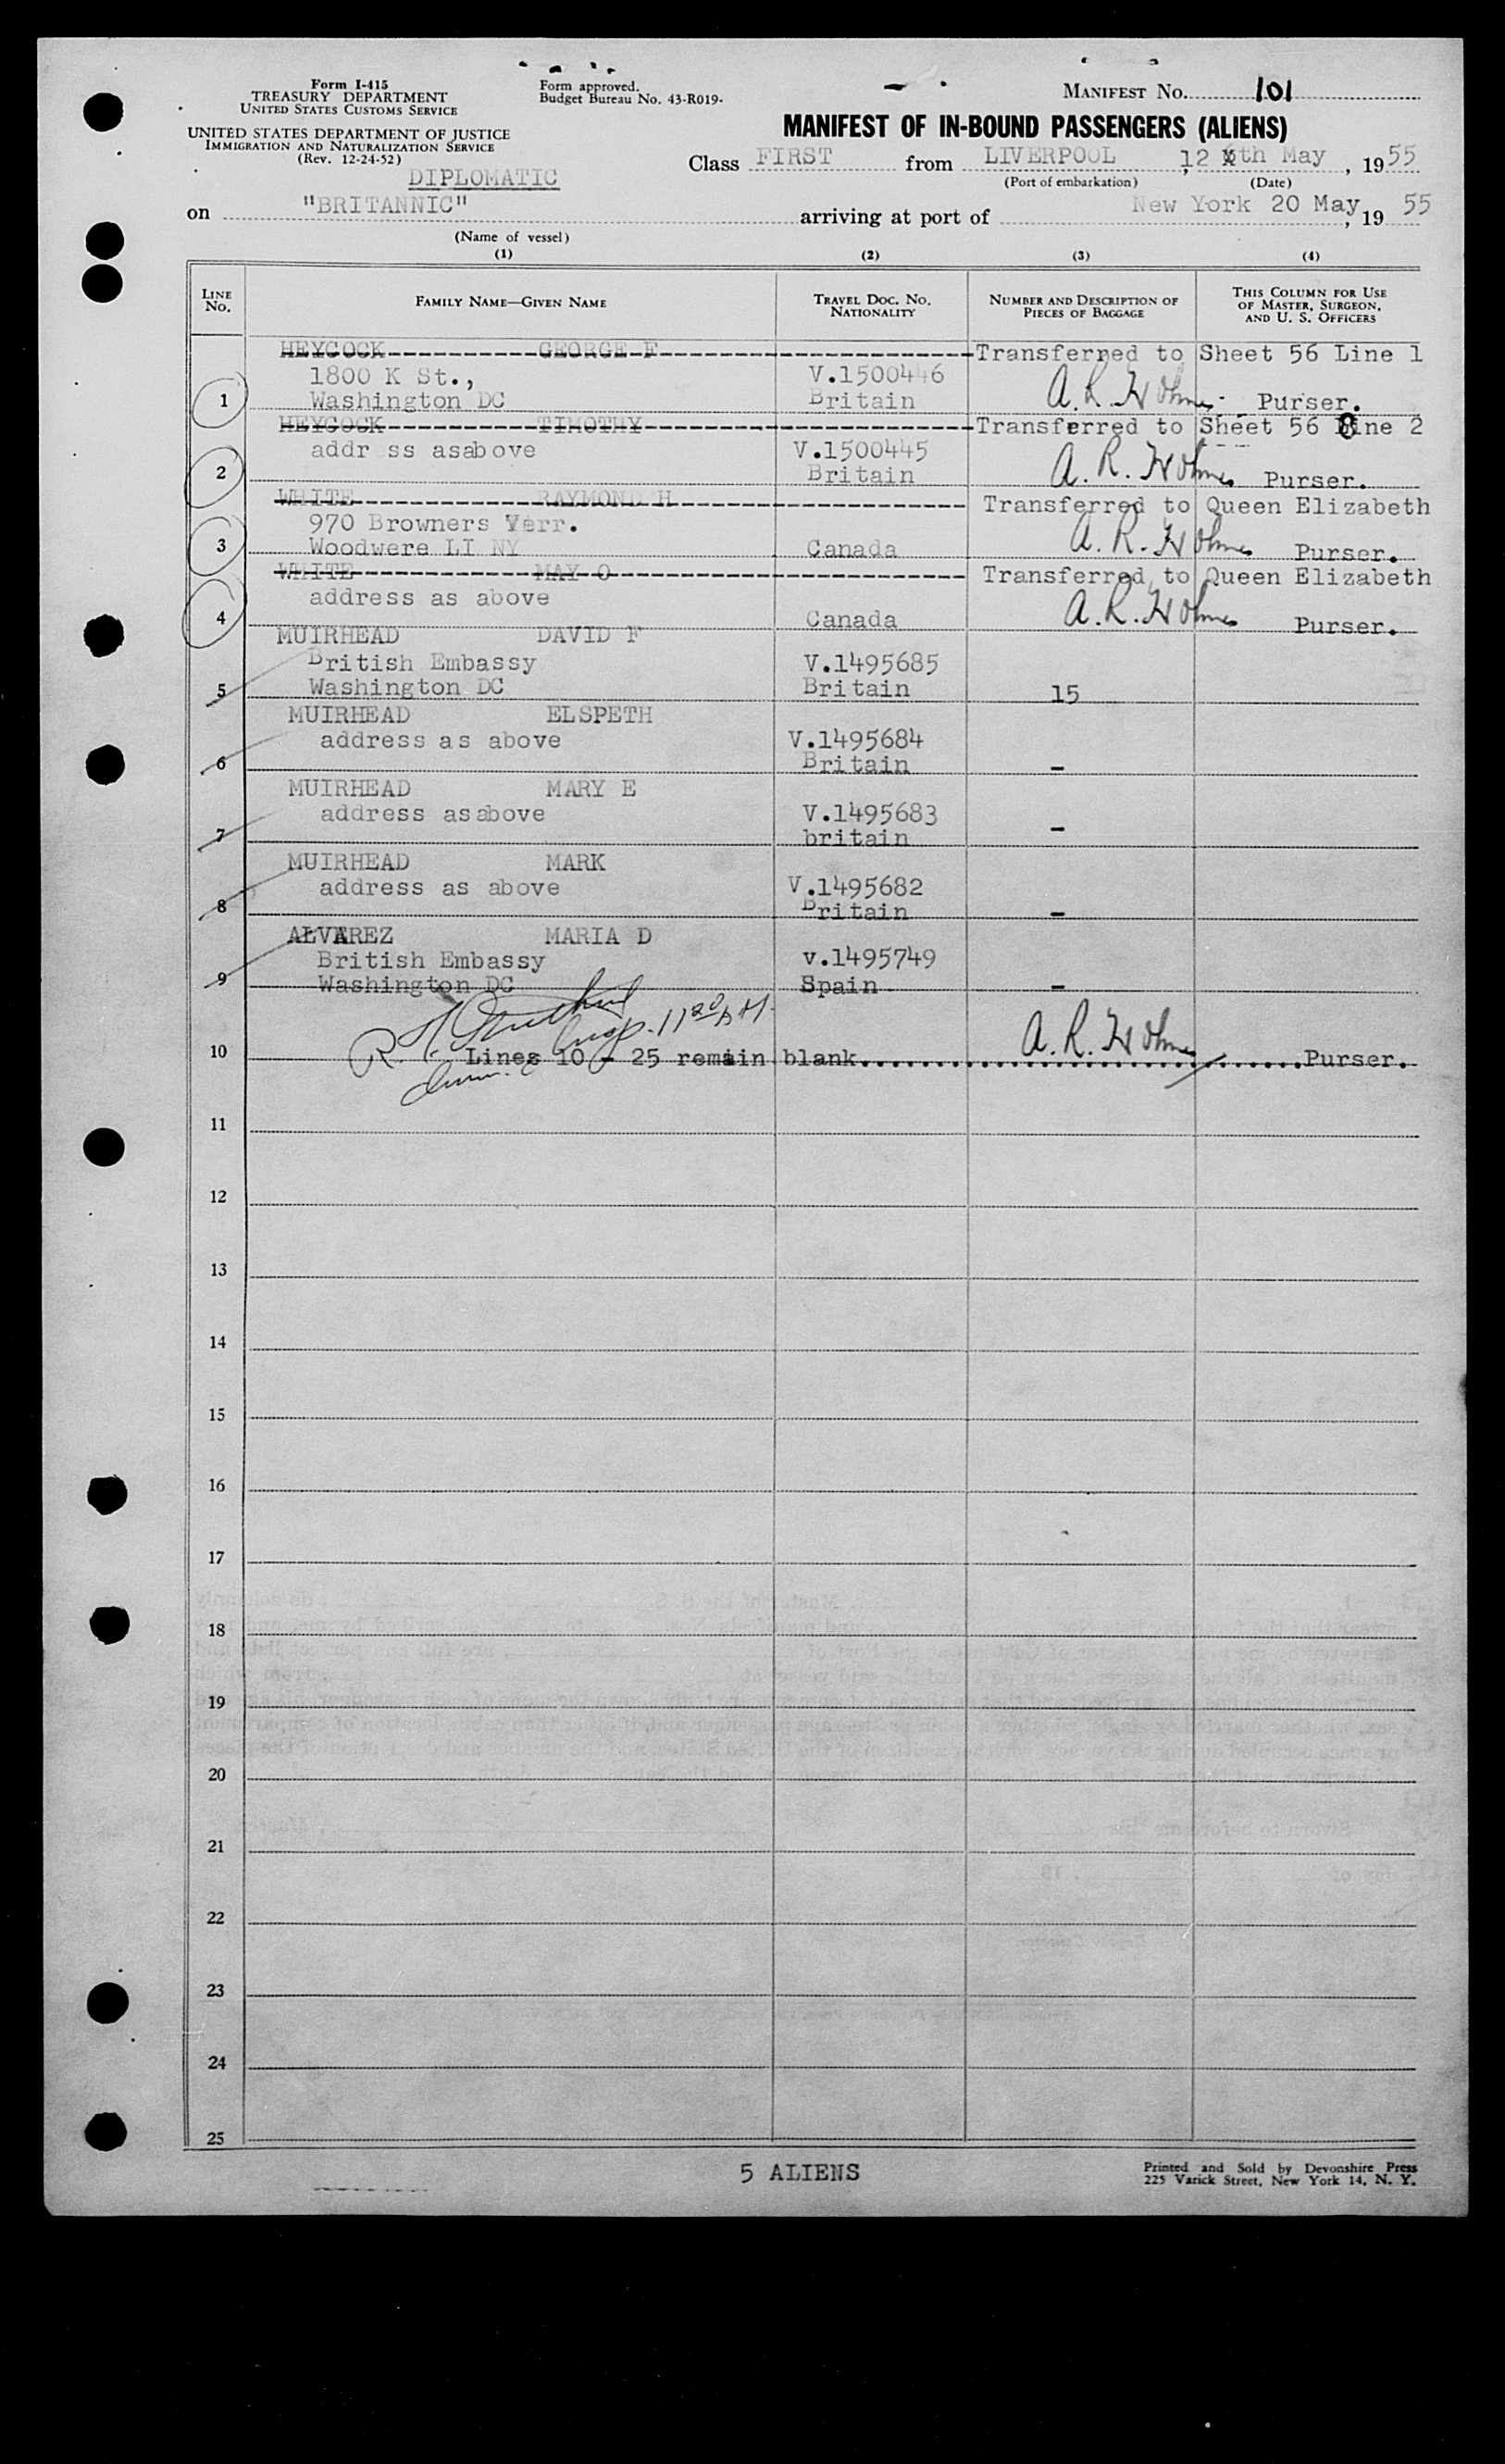 Form I-415
TREASURY DEPARTMENT
UNITED STATES CUSTOMS SERVICE
UNITED STATES DEPARTMENT OF JUSTICE
IMMIGRATION AND NATURALIZATION SERVICE
(Rev. 12-24-52)
Form approved.
Budget Bureau No. 43-R019-
MANIFEST NO. 101
MANIFEST OF IN-BOUND PASSENGERS (ALIENS)
Class FIRST from LIVERPOOL, 12 th May, 1955
(Port of embarkation) (Date)
DIPLOMATIC
on "BRITANNIC" arriving at port of New York 20 May, 19 55
(Name of vessel)
(1) (2) (3) (4)
LINE NO. FAMILY NAME—GIVEN NAME TRAVEL DOC. NO. NATIONALITY NUMBER AND DESCRIPTION OF PIECES OF BAGGAGE THIS COLUMN FOR USE OF MASTER, SURGEON, AND U. S. OFFICERS
HEYCOCK GEORGE F Transferred to Sheet 56 Line 1
1800 K St., V.1500446
1 Washington DC Britain A. R. Holmes Purser.
HEYCOCK TIMOTHY Transferred to Sheet 56 ine 2
addr ss asabove V.1500445
2 Britain A. R. Holmes Purser.
WHITE RAYMOND H Transferred to Queen Elizabeth
970 Browners Verr.
3 Woodwere LI NY Canada A. R. Holmes Purser.
WHITE MAY O Transferred to Queen Elizabeth
address as above
4 Canada A. R. Holmes Purser.
MUIRHEAD DAVID F
British Embassy V.1495685
5 Washington DC Britain 15
MUIRHEAD ELSPETH
address as above V.1495684
6 Britain -
MUIRHEAD MARY E
address asabove V.1495683
7 britain -
MUIRHEAD MARK
address as above V.1495682
8 Britain -
ALVAREZ MARIA D
British Embassy v.1495749
9 Washington DC Spain -
10 Lines 10 - 25 remain blank. A. R. Holmes Purser.
11
12
13
14
15
16
17
18
19
20
21
22
23
24
25
5 ALIENS
Printed and Sold by Devonshire Press
225 Varick Street, New York 14, N. Y.